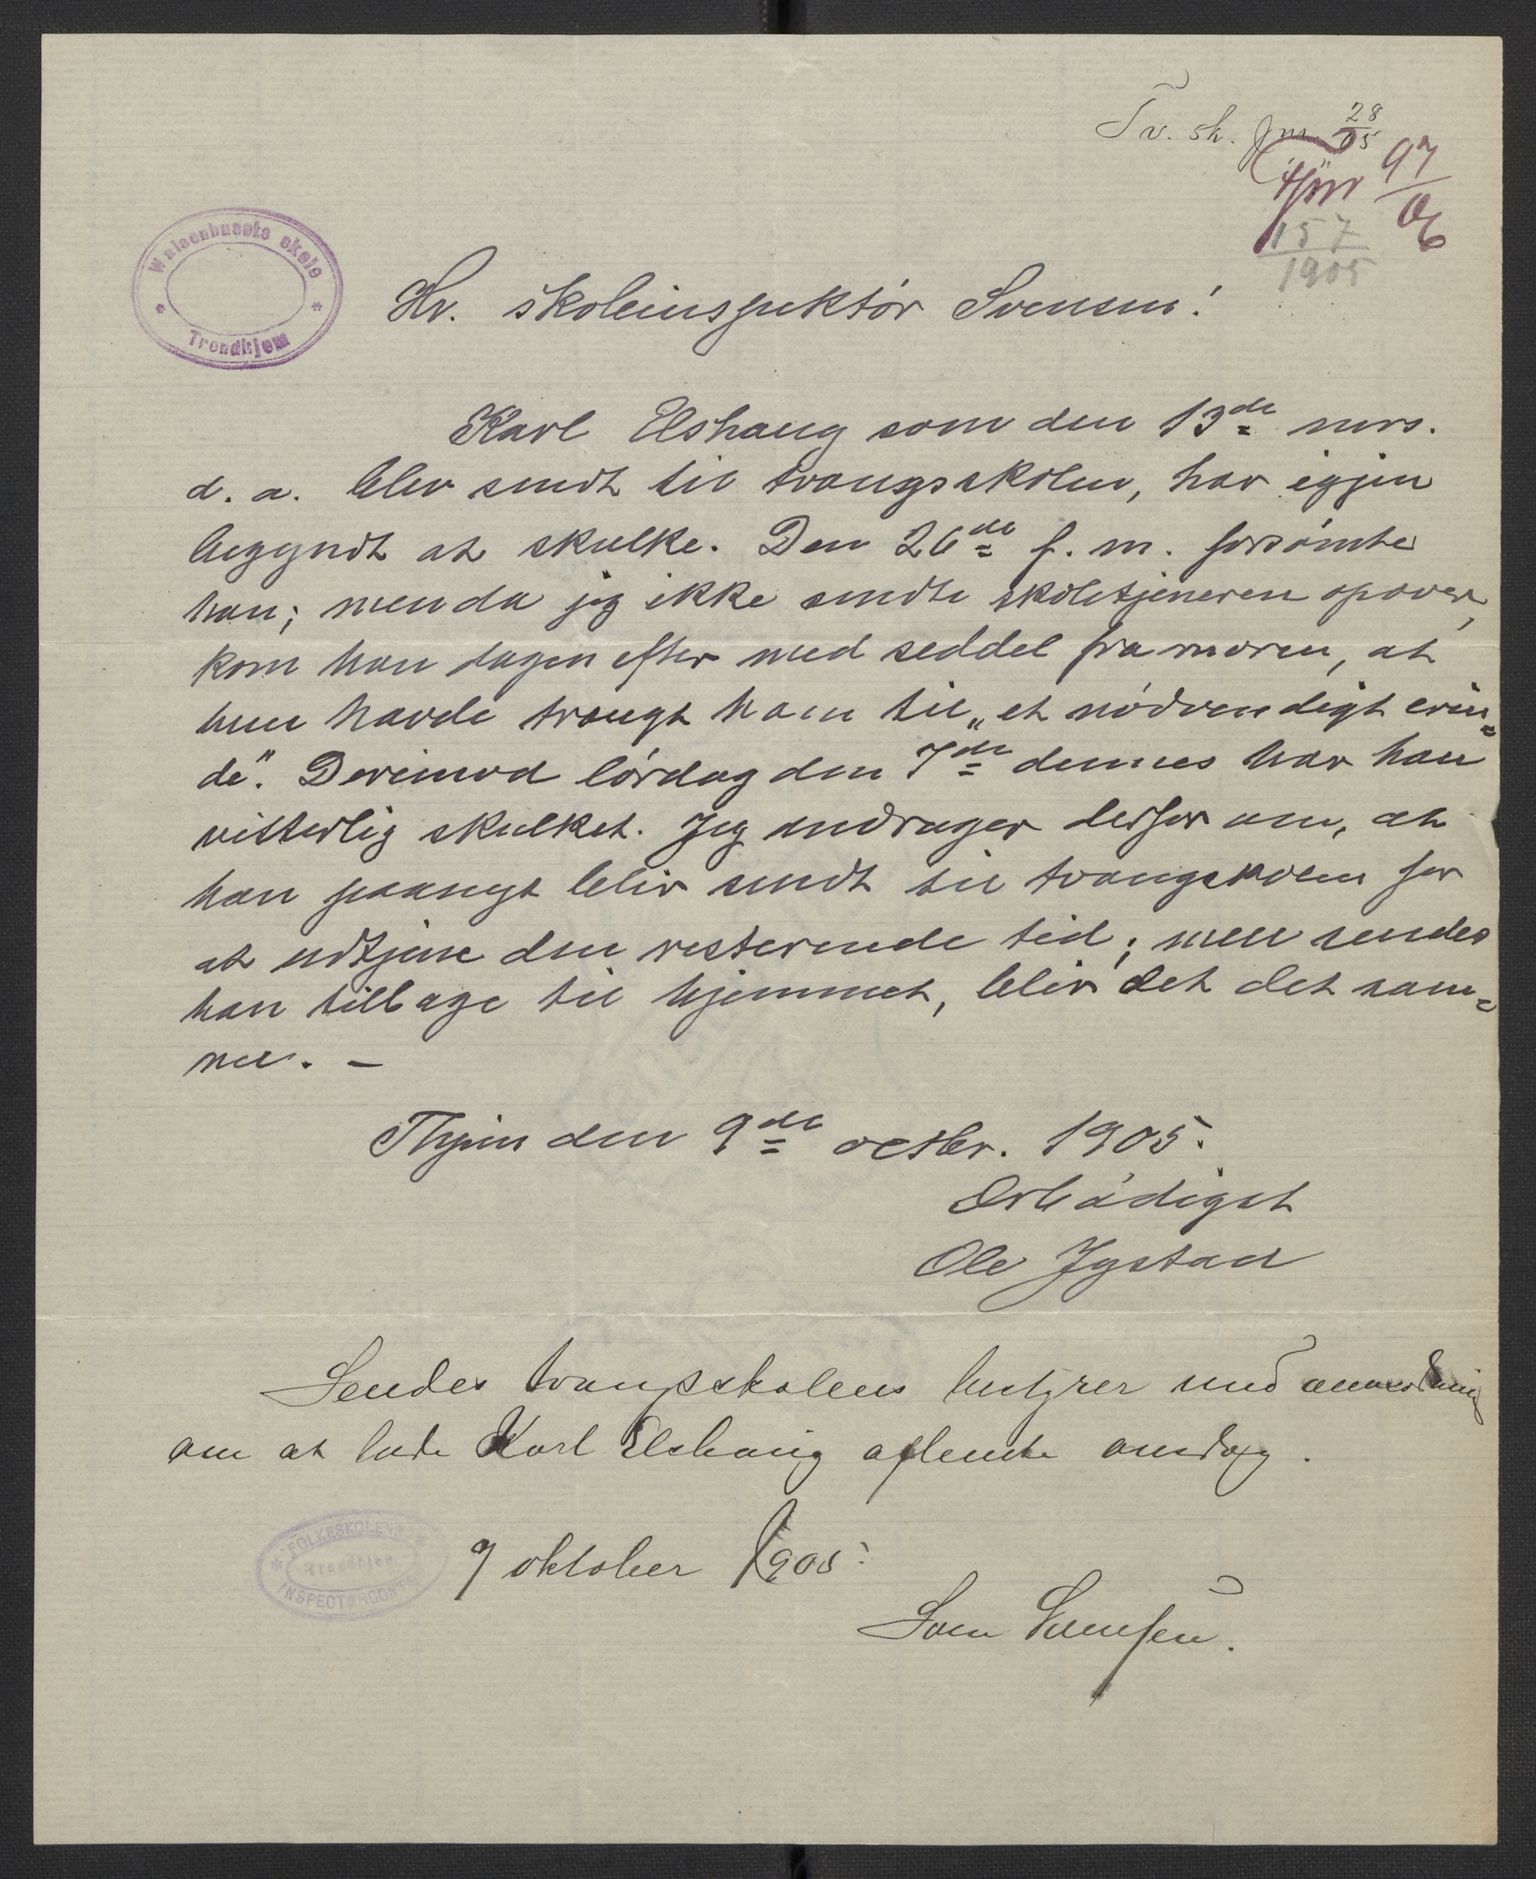 Tv. sk. Jnr. 28/05
Jnr 97/06
157/1905
Waisenhusets skole
Trondhjem
Hr. skoleinspektör Svensen!
Karl Elshaug som den 13de mrs.
d. a. blev sendt til tvangsskolen, har igjen
begyndt at skulke. Den 26de f. m. forsömte
han; men da jeg ikke sendte skoletjeneren opover,
kom han dagen efter med seddel fra moren, at
hun havde trængt ham til „et nödvendigt erin=
de". Derimod lördag den 7de dennes har han
vitterlig skulket. Jeg andrager derfor om, at
han paanyt blir sendt til tvangsskolen for
at udtjene den resterende tid; men sendes
han tilbage til hjemmet, blir det det sam=
me. –
Thjem den 9de octbr. 1905.
Ærbödigst
Ole Jystad
Sendes tvangsskolens bestyrer med anmodning
om at lade Karl Elshaug afhente onsdag.
FOLKESKOLENS
Trondhjem
INSPECTØRCONTOR
9 oktober 1905.
Sven Svensen.